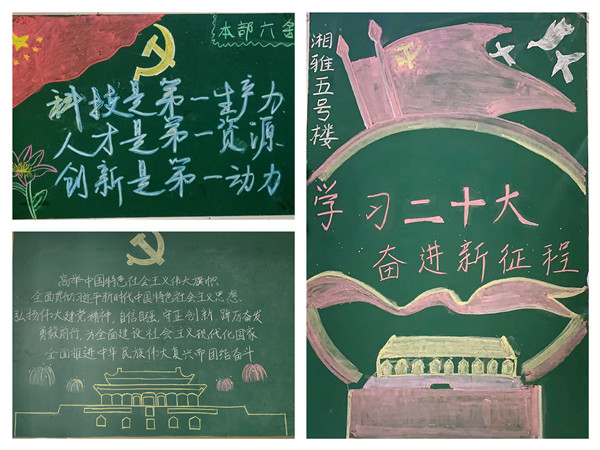 本部六舍
科技是第一生产力、
人才是第一资源、
创新是第一动力
高举中国特色社会主义伟大旗帜,
全面贯彻习近平新时代中国特色社会主义思想,
弘扬伟大建党精神,自信自强、守正创新,踔厉奋发
勇毅前行,为全面建设社会主义现代化国家
全面推进中华民族伟大复兴而团结奋斗
湘雅五号楼
学习二十大
奋进新征程